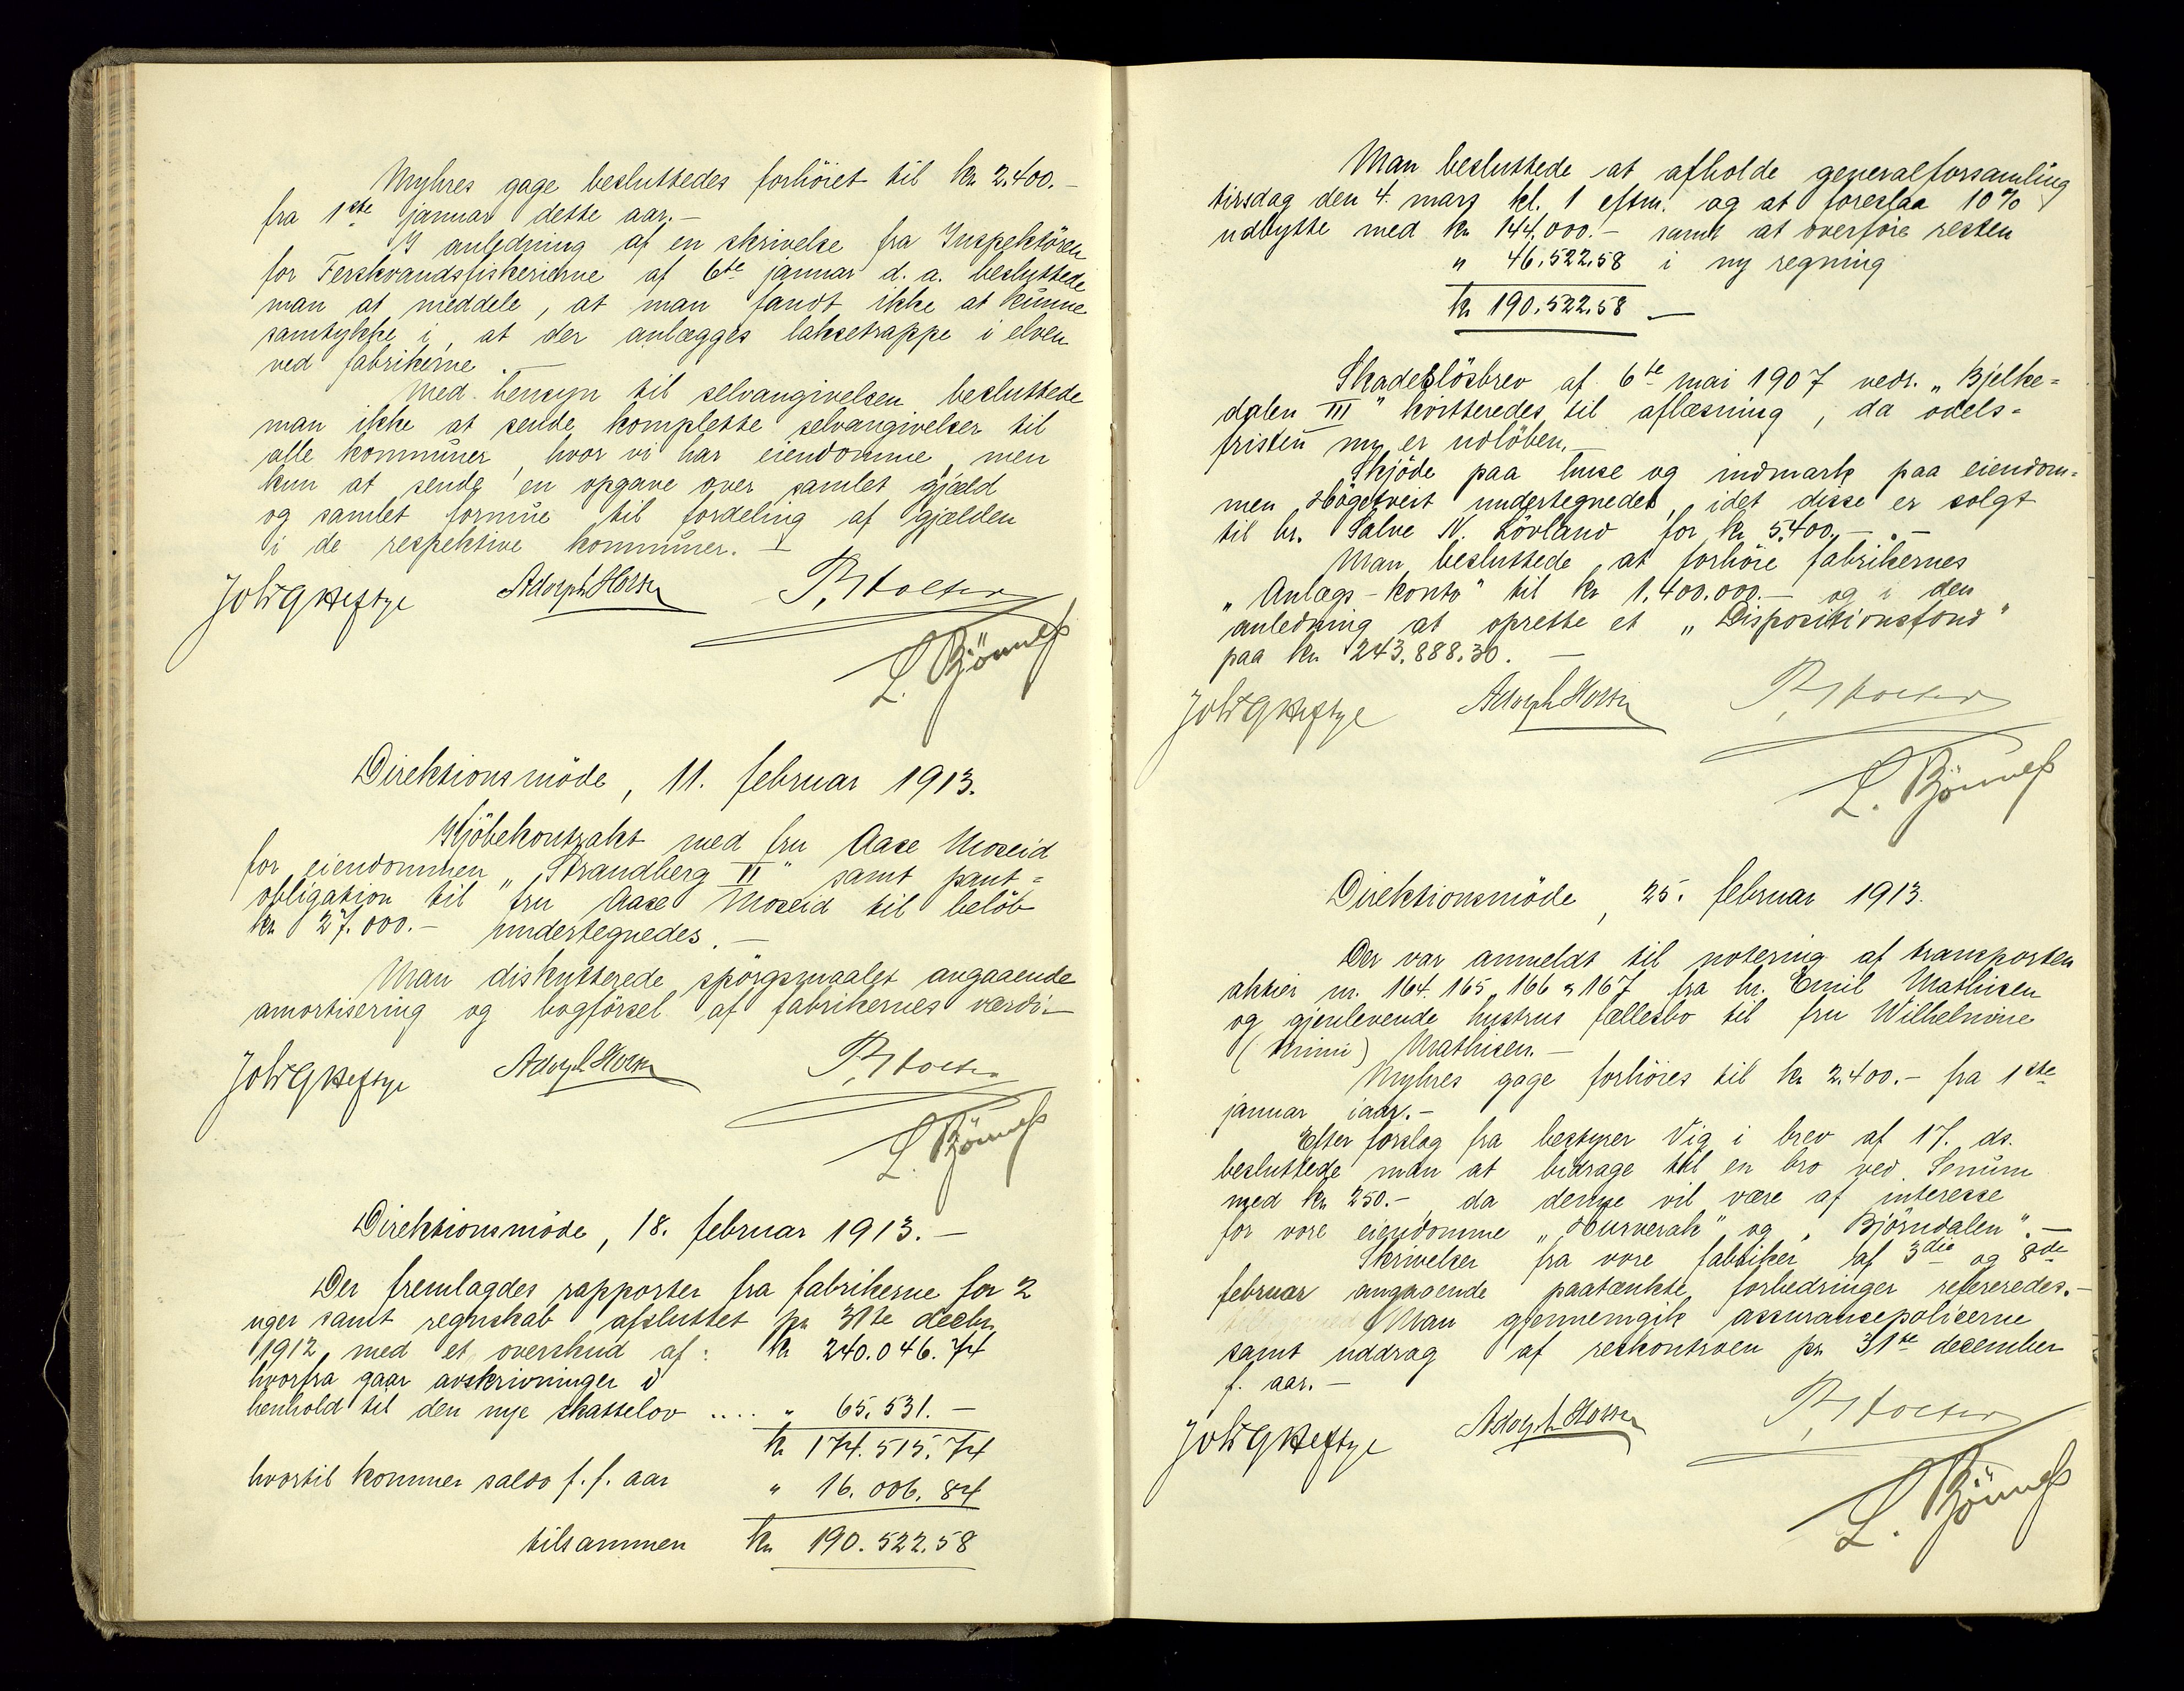 Myhres gage besluttedes forhöiet til kr 2.400.-
fra 1ste januar dette aar.-
I anledning af en skrivelse fra Inspektören
for Ferskvandsfiskerierne af 6te januar d. a. besluttede
man at meddele, at man fandt ikke at kunne
samtykke i, at der anlægges laksetrappe i elven
ved fabrikerne.-
Med hensyn til selvangivelsen besluttede
man ikke at sende komplette selvangivelser til
alle kommuner, hvor vi har eiendomme, men
kun at sende en opgave over samlet gjæld
og samlet formue til fordeling af gjælden
i de respektive kommuner.-
Joh G Heftye Adolph Horn
L. Bönneß
Direktionsmöde, 11. februar 1913.
Kjöbekontrakt med fru Aase Moseid
for eiendommen "Strandberg II" samt pant=
obligation til fru Aase Moseid til belöb
kr 27.000.- undertegnedes.-
Man diskutterede spörgsmaalet angaaende
amortisering og bogförsel af fabrikernes værdi.-
Joh G Heftye Adolph Horn
L. Bönneß
Direktionsmöde, 18. februar 1913.-
Der fremlagdes rapporter fra fabrikerne for 2
uger samt regnskab afsluttet pr 31te decbr
1912 med et overskud af: kr 240.046.74
hvorfra gaar avskrivninger i
henhold til den nye skattelov .... " 65.531.-
kr 174.515.74
hvortil kommer saldo f. f. aar " 16.006.84
tilsammen kr 190.522.58
Man besluttede at afholde generalforsamling
tirsdag den 4. mars kl. 1 eftm. og at foreslaa 10%
udbytte med kr 144.000.- samt at overföre resten
" 46.522.58 i ny regning
kr 190.522.58 -
Skadeslösbrev af 6te mai 1907 vedr. "Bjelke=
dalen III" kvitteredes til aflæsning, da odels=
fristen nu er udlöben.-
Skjöde paa huse og indmark paa eiendom=
men Högetveit undertegnedes, idet disse er solgt
til hr. Salve N. Lövland for kr 5.400.-.-
Man besluttede at forhöie fabrikernes
"Anlægs-konto" til kr 1.400.000.- og i den
anledning at oprette et "Dispositionsfond"
paa kr 243.888.30.-
Joh G Heftye Adolph Horn
L. Bönneß
Direktionsmöde, 25. februar 1913.
Der var anmeldt til notering af transporten
aktier nr. 164. 165, 166 & 167 fra hr. Emil Mathisen
og gjenlevende hustrus fællesbo til fru Wilhelmine
(Mimi) Mathisen.-
Myhres gage forhöies til kr 2.400.- fra 1ste
januar iaar.-
Efter forslag fra bestyrer Vig i brev af 17. ds.
besluttede man at bidrage til en bro ved Senum
med kr 250.-, da denne vil være af interesse
for vore eiendomme "Husverak" og "Björndalen".-
Skrivelser fra vore fabriker af 3die og 8de
februar angaaende paatænkte forbedringer refereredes.-
Man gjennemgik assurancepolicerne
samt uddrag af reskontroen pr 31te december
f. aar.-
Joh G Heftye Adolph Horn
L. Bönneß